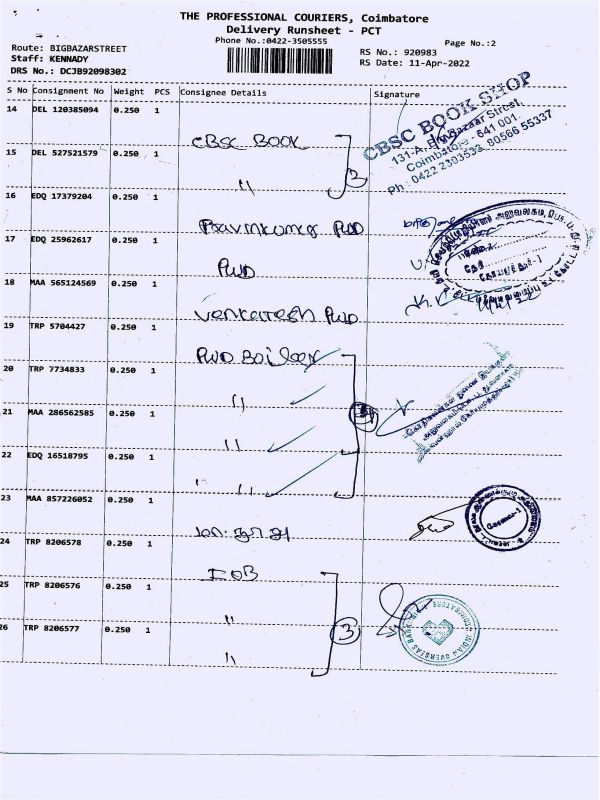 THE PROFESSIONAL COURIERS, Coimbatore
Delivery Runsheet - PCT
Phone No.:0422-3505555
Page No.:2
Route: BIGBAZARSTREET
Staff: KENNADY
DRS No.: DCJB92098302
RS No.: 920983
RS Date: 11-Apr-2022
S No Consignment No Weight PCS Consignee Details Signature
14 DEL 120385094 0.250 1
CBSC BOOK
CBSC BOOK SHOP
131-A, Big Bazaar Street,
Coimbatore - 641 001
Ph : 0422 2303533, 80566 55337
15 DEL 527521579 0.250 1
"
2
16 EDQ 17379204 0.250 1
PWD
17 EDQ 25962617 0.250 1
PWD
18 MAA 565124569 0.250 1
Venkatesh PWD
19 TRP 5704427 0.250 1
PWD
20 TRP 7734833 0.250 1
"
21 MAA 286562585 0.250 1
"
22 EDQ 16518795 0.250 1
"
23 MAA 857226052 0.250 1
24 TRP 8206578 0.250 1
IOB
25 TRP 8206576 0.250 1
"
3
26 TRP 8206577 0.250 1
"
INDIAN OVERSEAS BANK
COIMBATORE